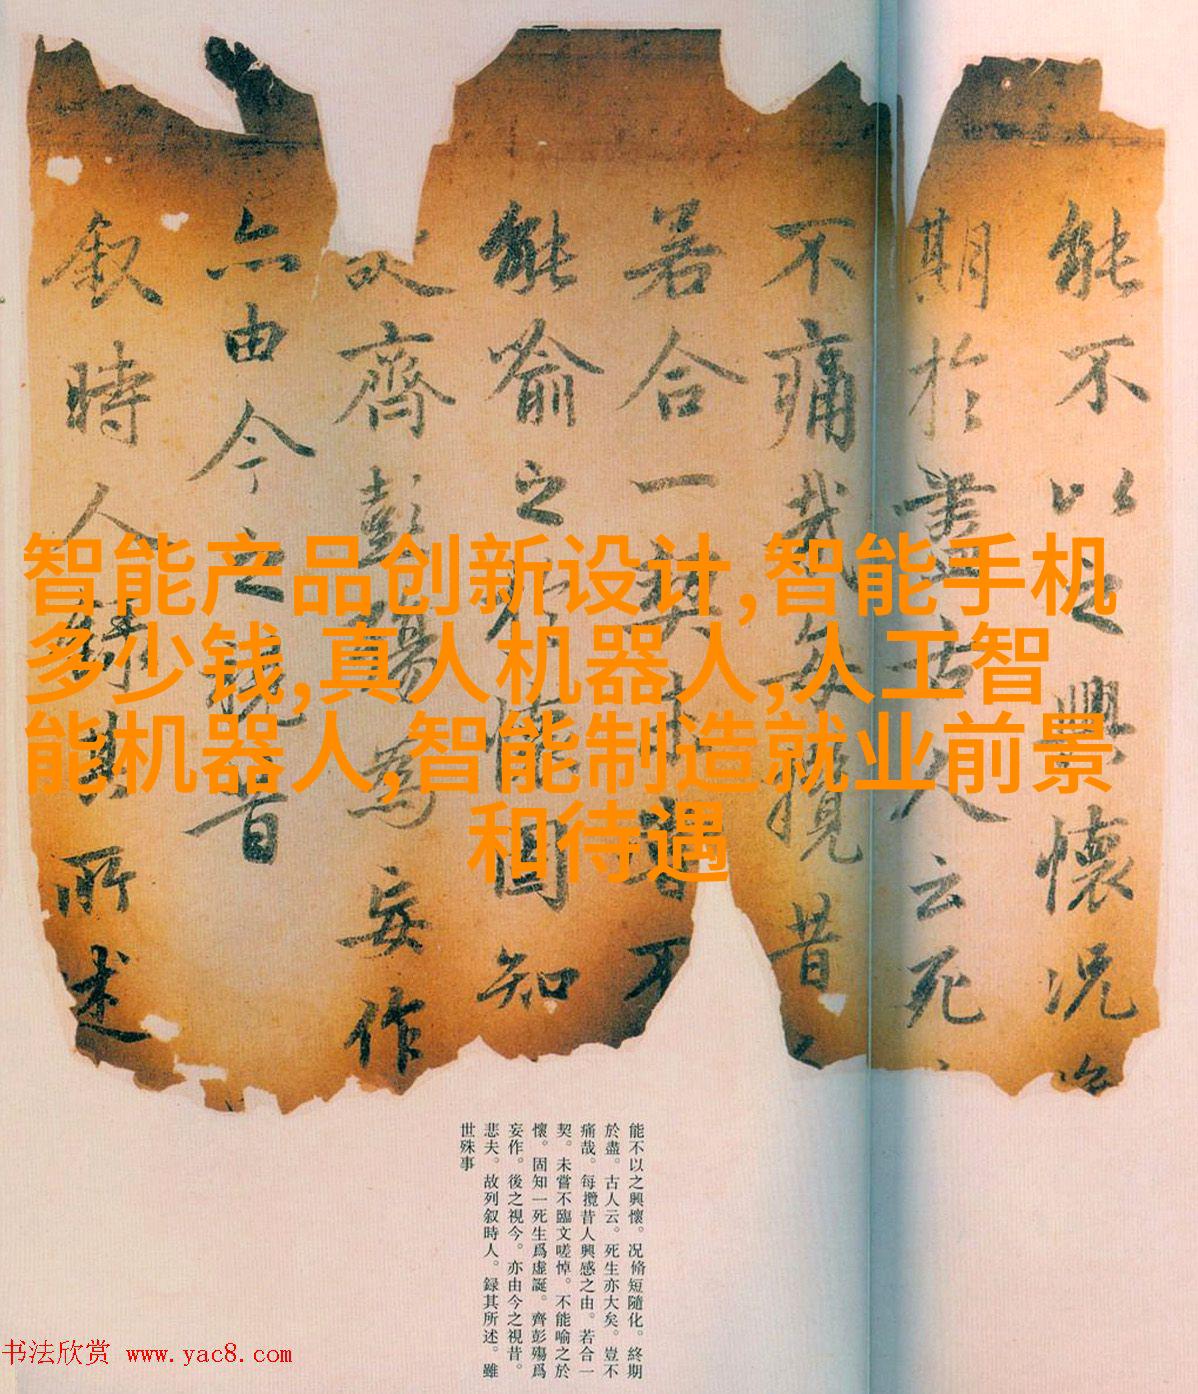 能不以之興懷况
期於盡古人云死
不痛哉每攬昔
若合一契未嘗不
能喻之於懷固知
齊彭殤為妄作
亦由今之視昔
叙時人録其所述
智能产品创新设计,智能手机
多少钱,真人机器人,人工智
能机器人,智能制造就业前景
和待遇
能不以之興懷。况脩短隨化。終期
於盡。古人云。死生亦大矣。豈不
痛哉。每攬昔人興感之由。若合一
契。未嘗不臨文嗟悼。不能喻之於
懷。固知一死生爲虛誕。齊彭殤爲
妄作。後之視今。亦由今之視昔。
悲夫。故列叙時人。録其所述。雖
世殊事
书法欣赏 www.yac8.com